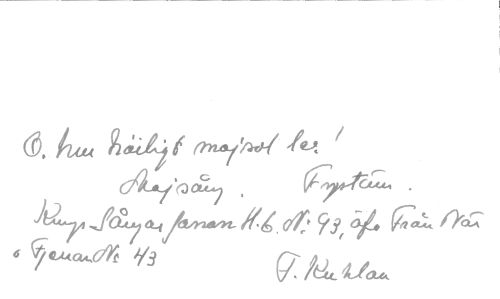 O, hur härligt majsol ler!
Majsång. Frystäm.
Kungs Sångar Janan H. 6. Nr: 93, äfv Från När
o Fjerran Nr 43
F. Kuhlau